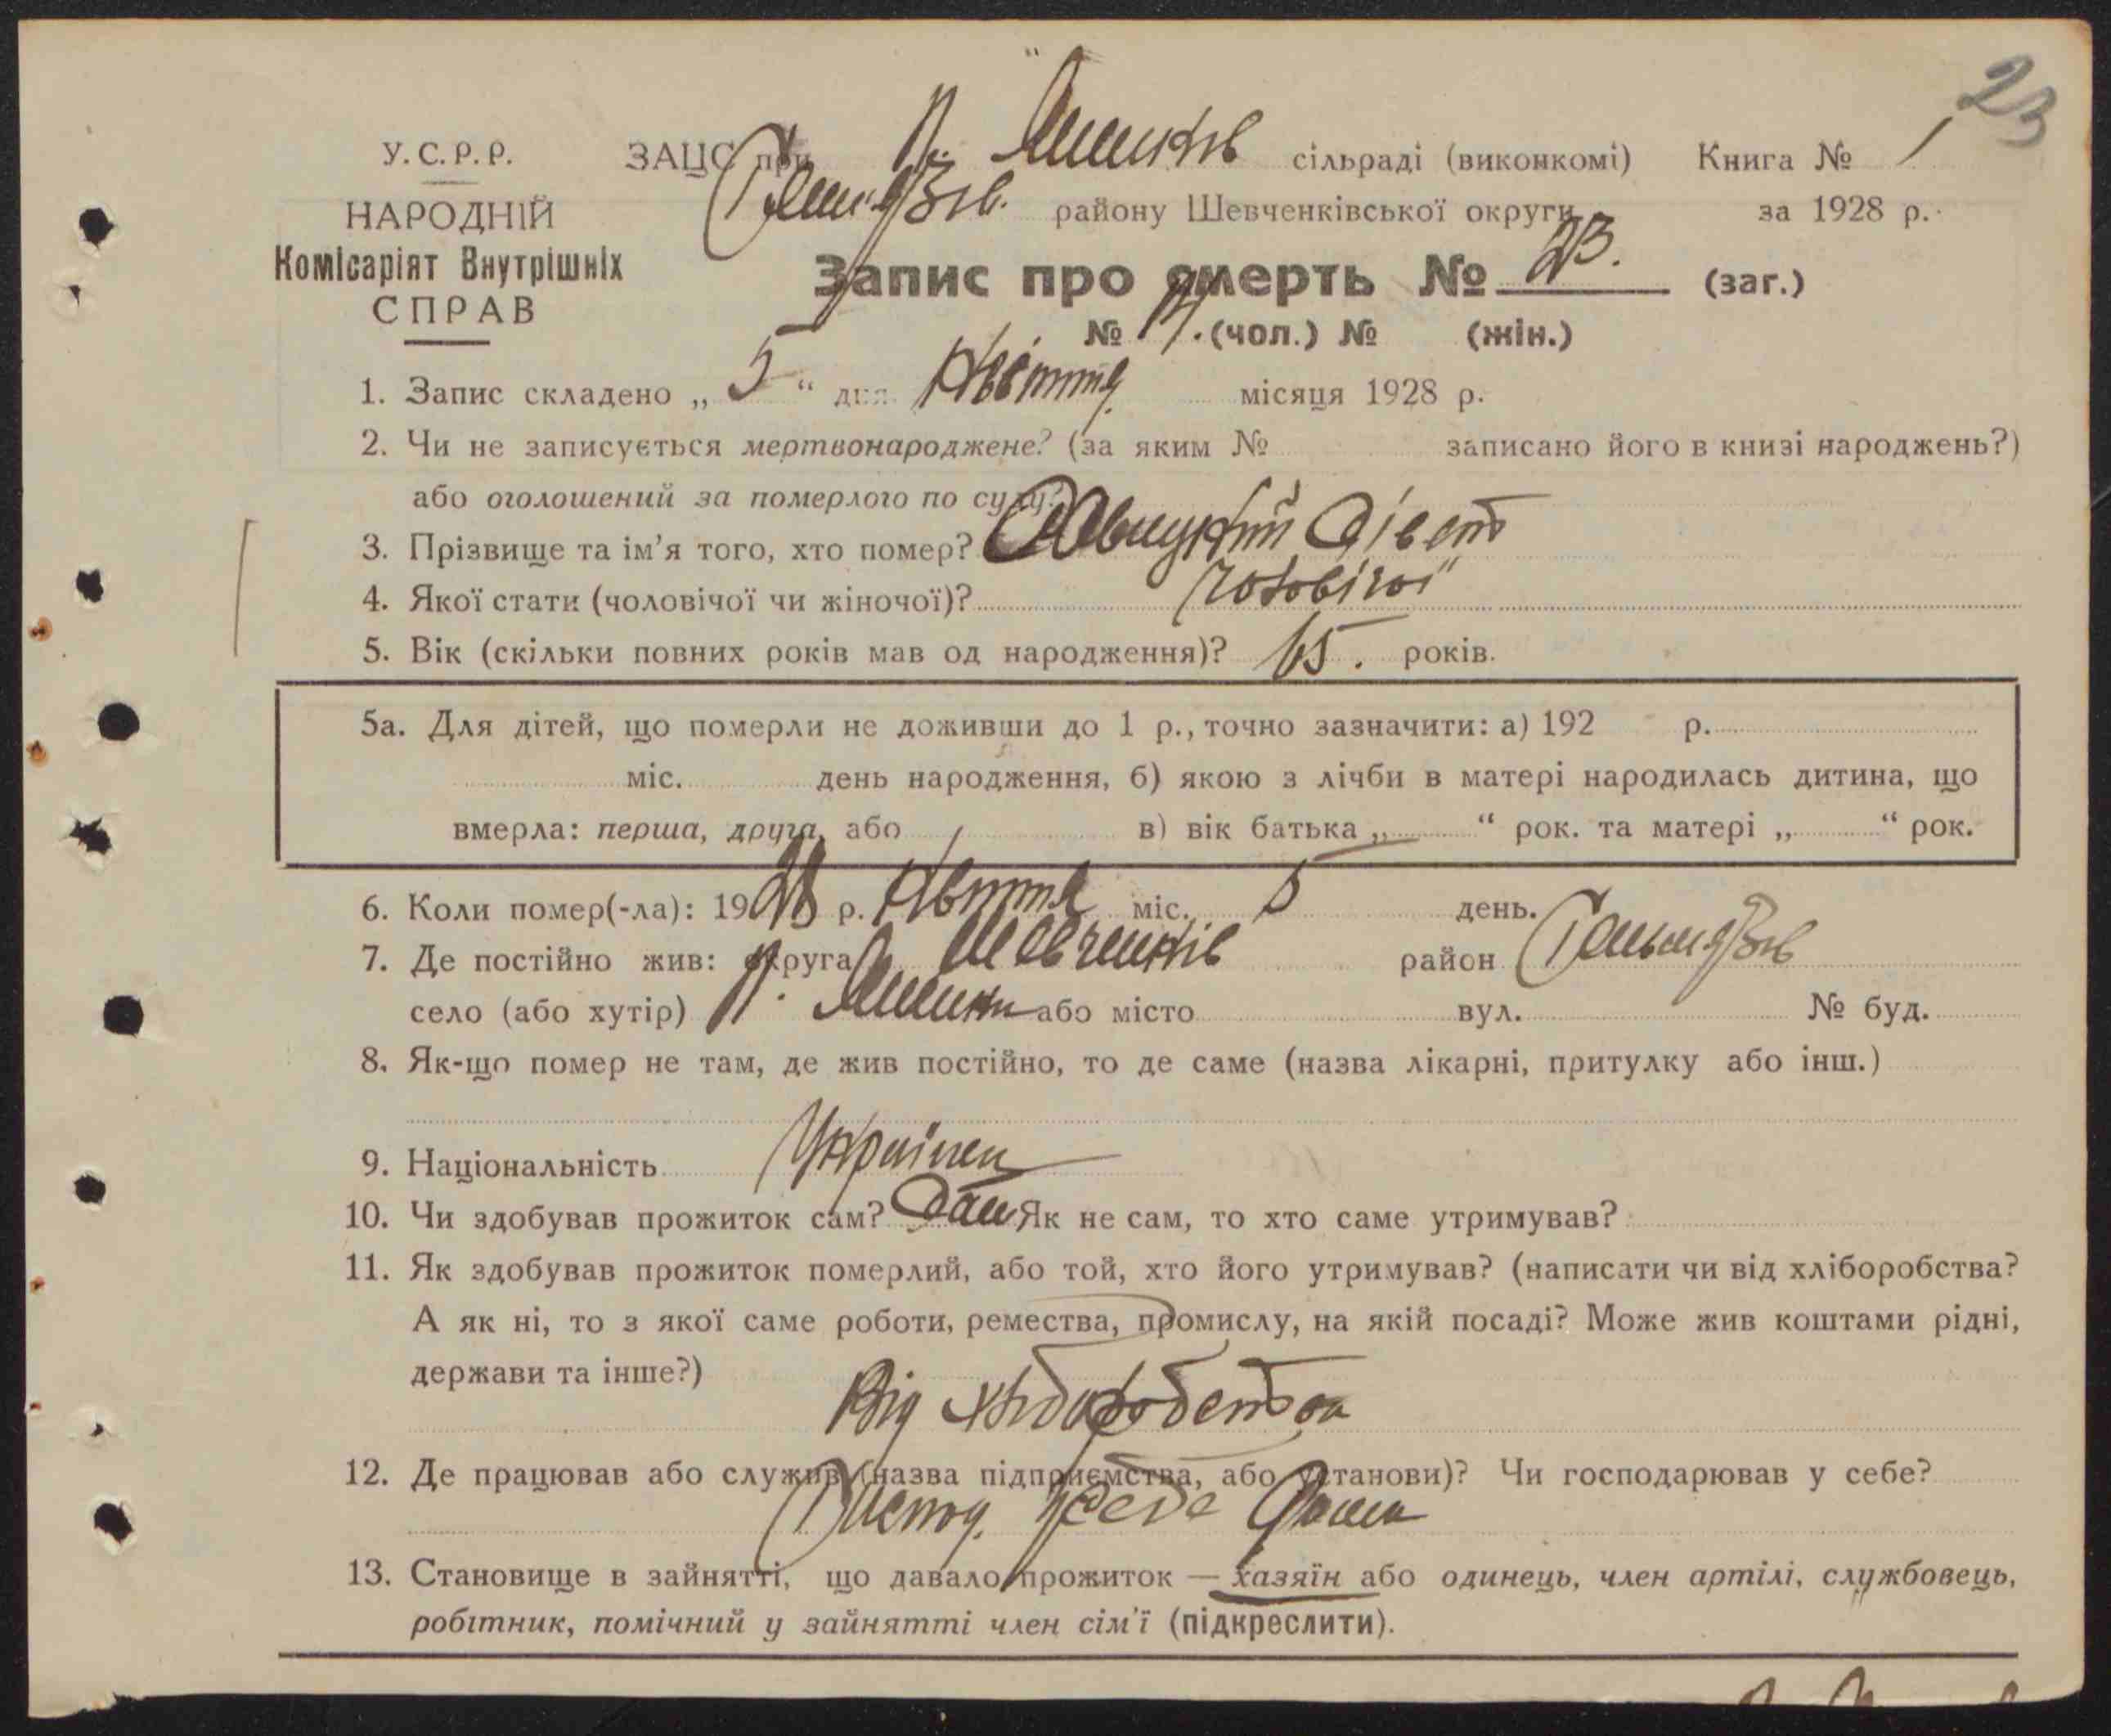 23
У.С.Р.Р.
НАРОДНІЙ
Комісаріят Внутрішніх
СПРАВ
ЗАЦС при П. Яшників сільраді (виконкомі) Книга № 1
Гельмязів. району Шевченківської округи за 1928 р.
Запис про смерть № 23. (заг.)
№ (чол.) № (жін.)
1. Запис складено „ 5 “ дня Квітня місяця 1928 р.
2. Чи не записується мертвонароджене? (за яким № записано його в книзі народжень?)
або оголошений за померлого по суду?
3. Прізвище та ім’я того, хто помер?
4. Якої стати (чоловічої чи жіночої)? чоловічої
5. Вік (скільки повних років мав од народження)? 65. років.
5а. Для дітей, що померли не доживши до 1 р., точно зазначити: а) 192 р.
міс. день народження, б) якою з лічби в матері народилась дитина, що
вмерла: перша, друга, або в) вік батька „ “ рок. та матері „ “ рок.
6. Коли помер(-ла): 1928 р. Квітня міс. 5 день.
7. Де постійно жив: округа Шевченків район Гельмязів
село (або хутір) П. або місто вул. № буд.
8. Як-що помер не там, де жив постійно, то де саме (назва лікарні, притулку або інш.)
9. Національність Українец
10. Чи здобував прожиток сам? Сам Як не сам, то хто саме утримував?
11. Як здобував прожиток померлий, або той, хто його утримував? (написати чи від хліборобства?
А як ні, то з якої саме роботи, ремества, промислу, на якій посаді? Може жив коштами рідні,
держави та інше?)
Від хліборобства
12. Де працював або служив (назва підприємства, або установи)? Чи господарював у себе?
Господ. у себе дома
13. Становище в зайнятті, що давало прожиток — хазяїн або одинець, член артілі, службовець,
робітник, помічний у зайнятті член сім’ї (підкреслити).